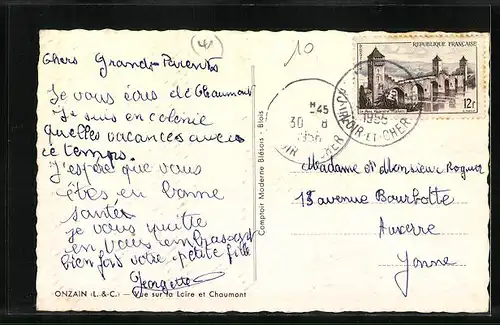 chers Grands Parents
Je vous écris de Chaumont
Je suis en colonie
quelles vacances avec
ce temps.
J'espère que vous
êtes en bonne
santée
je vous quitte
en vous embrassant
bien fort votre petite fille
Georgette
ONZAIN (L.-&-C.) — Vue sur la Loire et Chaumont
Comptoir Moderne Blésois - Blois
10
REPUBLIQUE FRANÇAISE
12f
H -45
30 8
1956
LOIR-ET-CHER
1956
Madame et Monsieur
18 avenue Bourbotte
Auxerre
Yonne